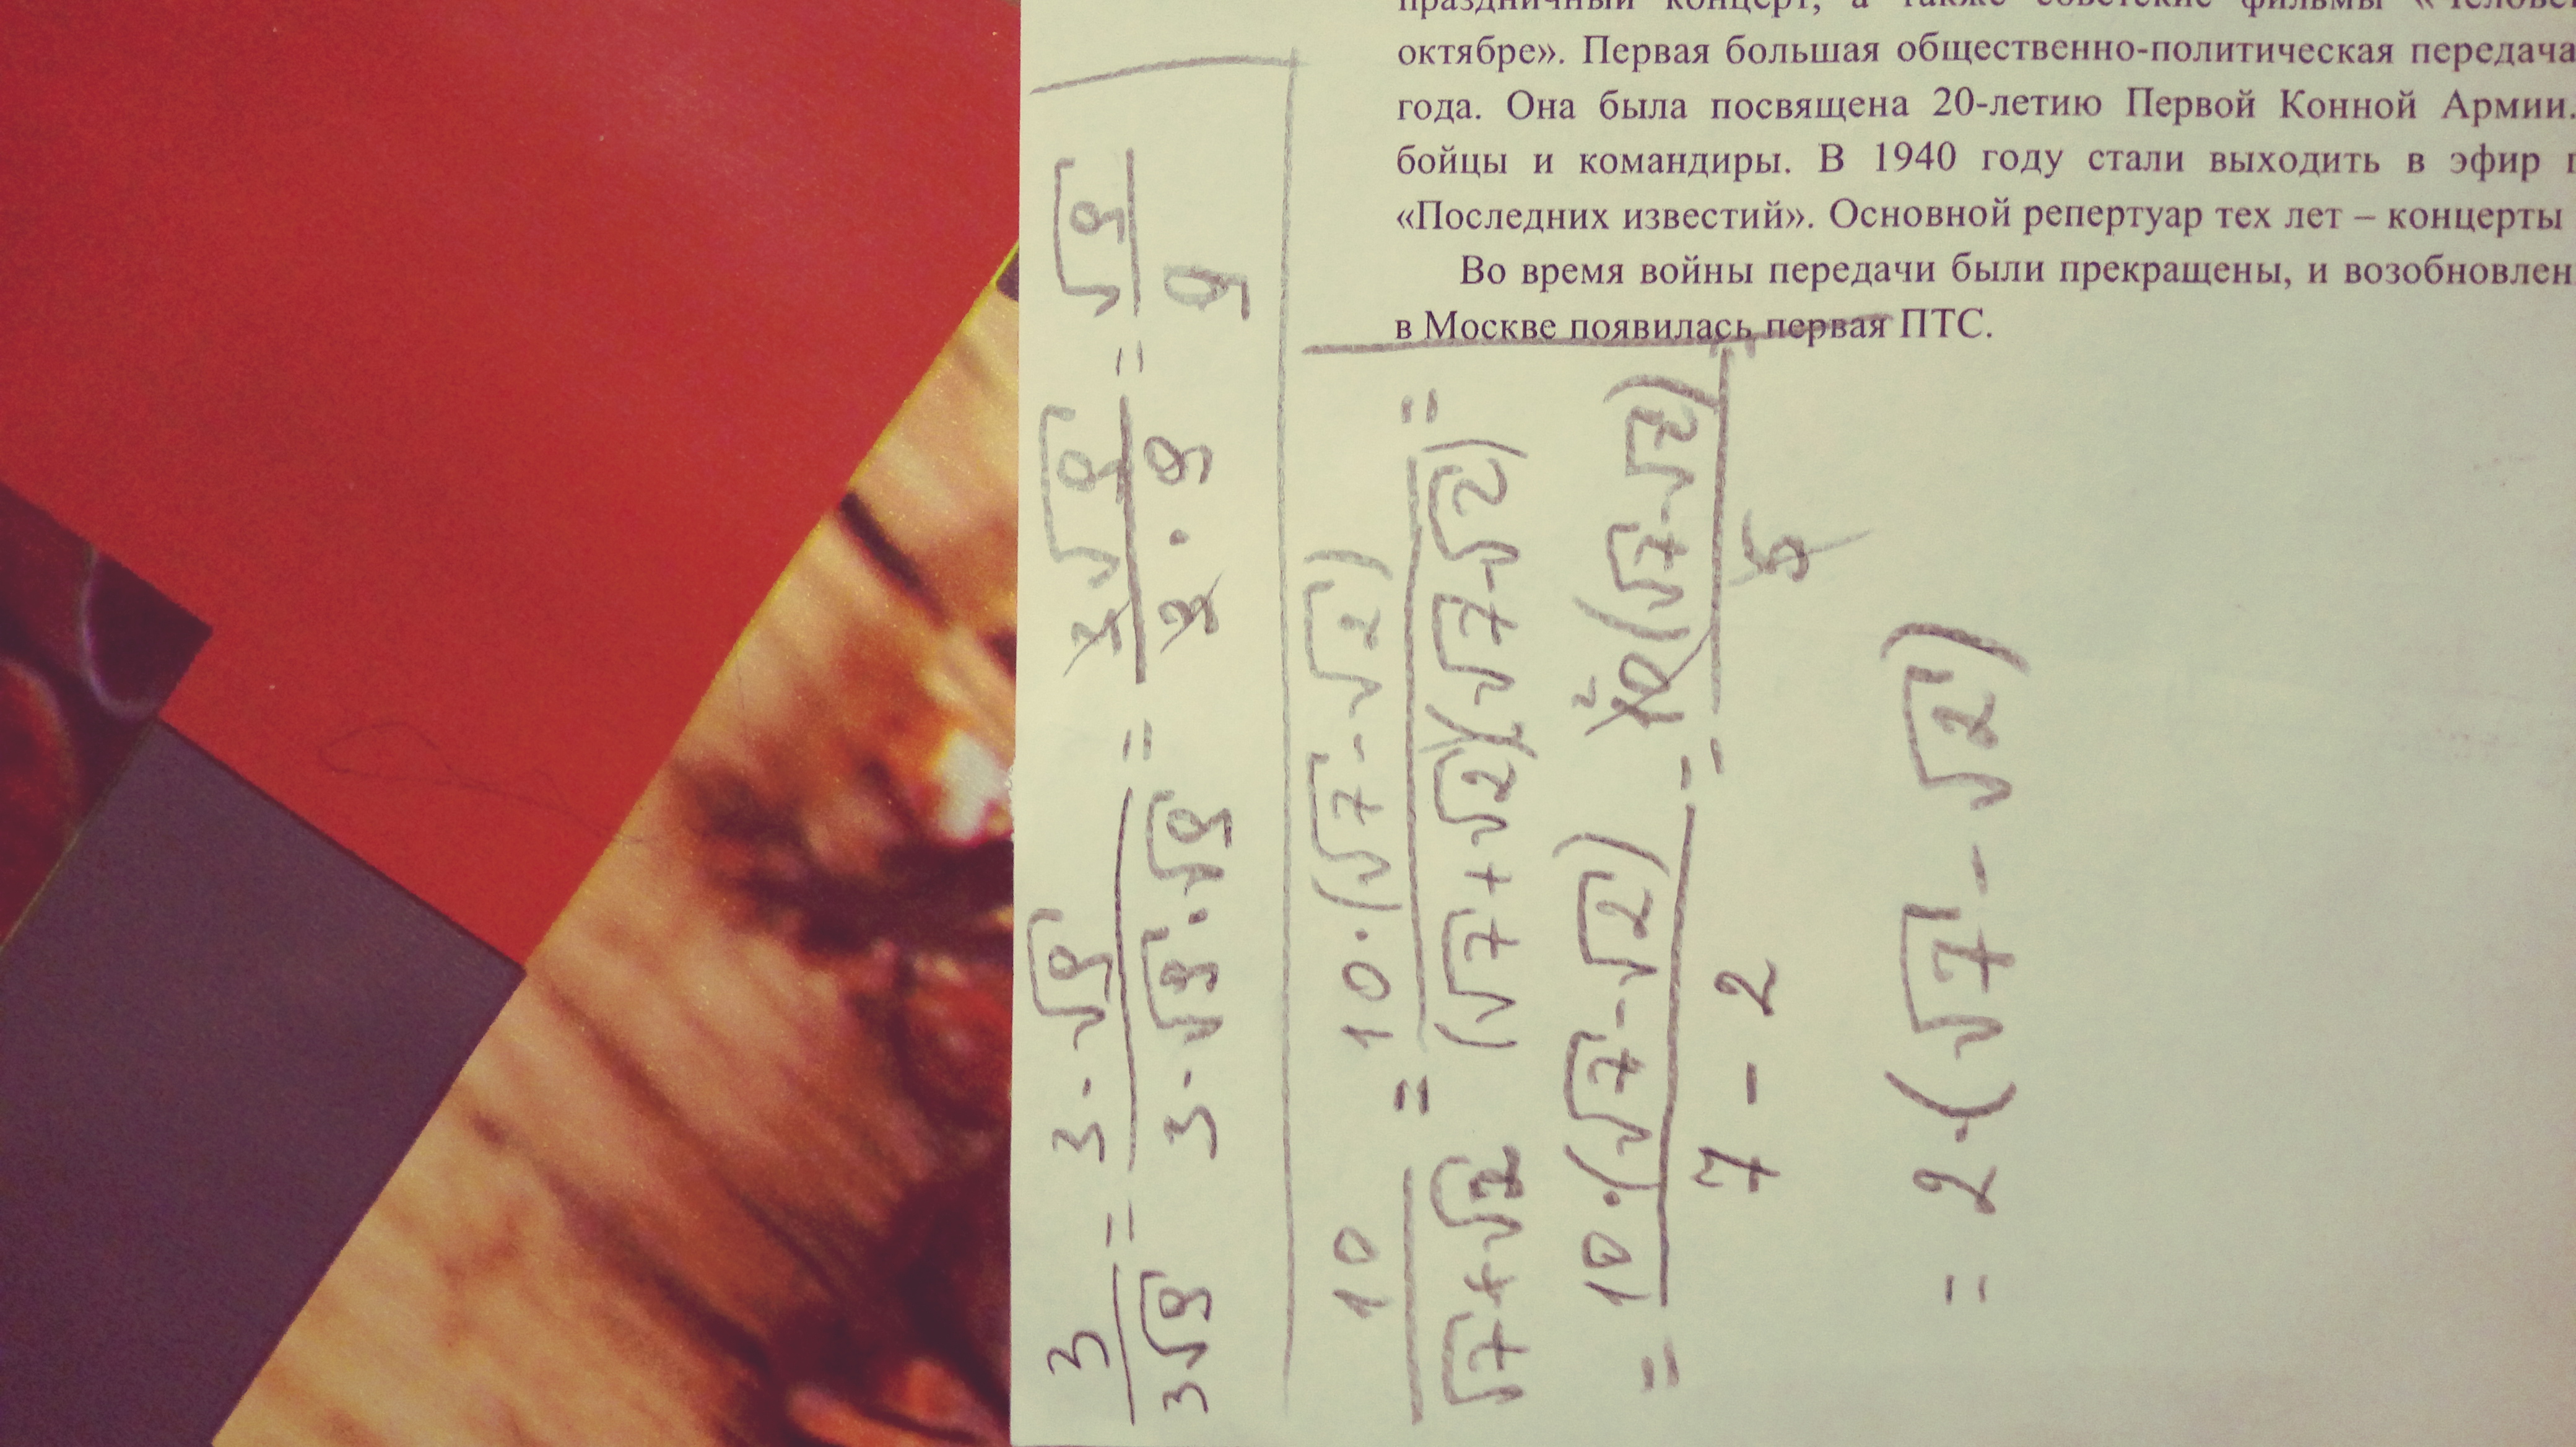 праздничный концерт, а также советские фильмы
октябре». Первая большая общественно-политическая передача
года. Она была посвящена 20-летию Первой Конной Армии.
бойцы и командиры. В 1940 году стали выходить в эфир
«Последних известий». Основной репертуар тех лет – концерты
Во время войны передачи были прекращены, и возобновлен
в Москве появилась первая ПТС.
3/3√9 = 3·√9/3·√9·√9 = 3√9/3·9 = √9/9
10/√7+√2 = 10·(√7-√2)/(√7+√2)(√7-√2) =
= 10·(√7-√2)/7-2 = 10(√7-√2)/5
= 2·(√7-√2)